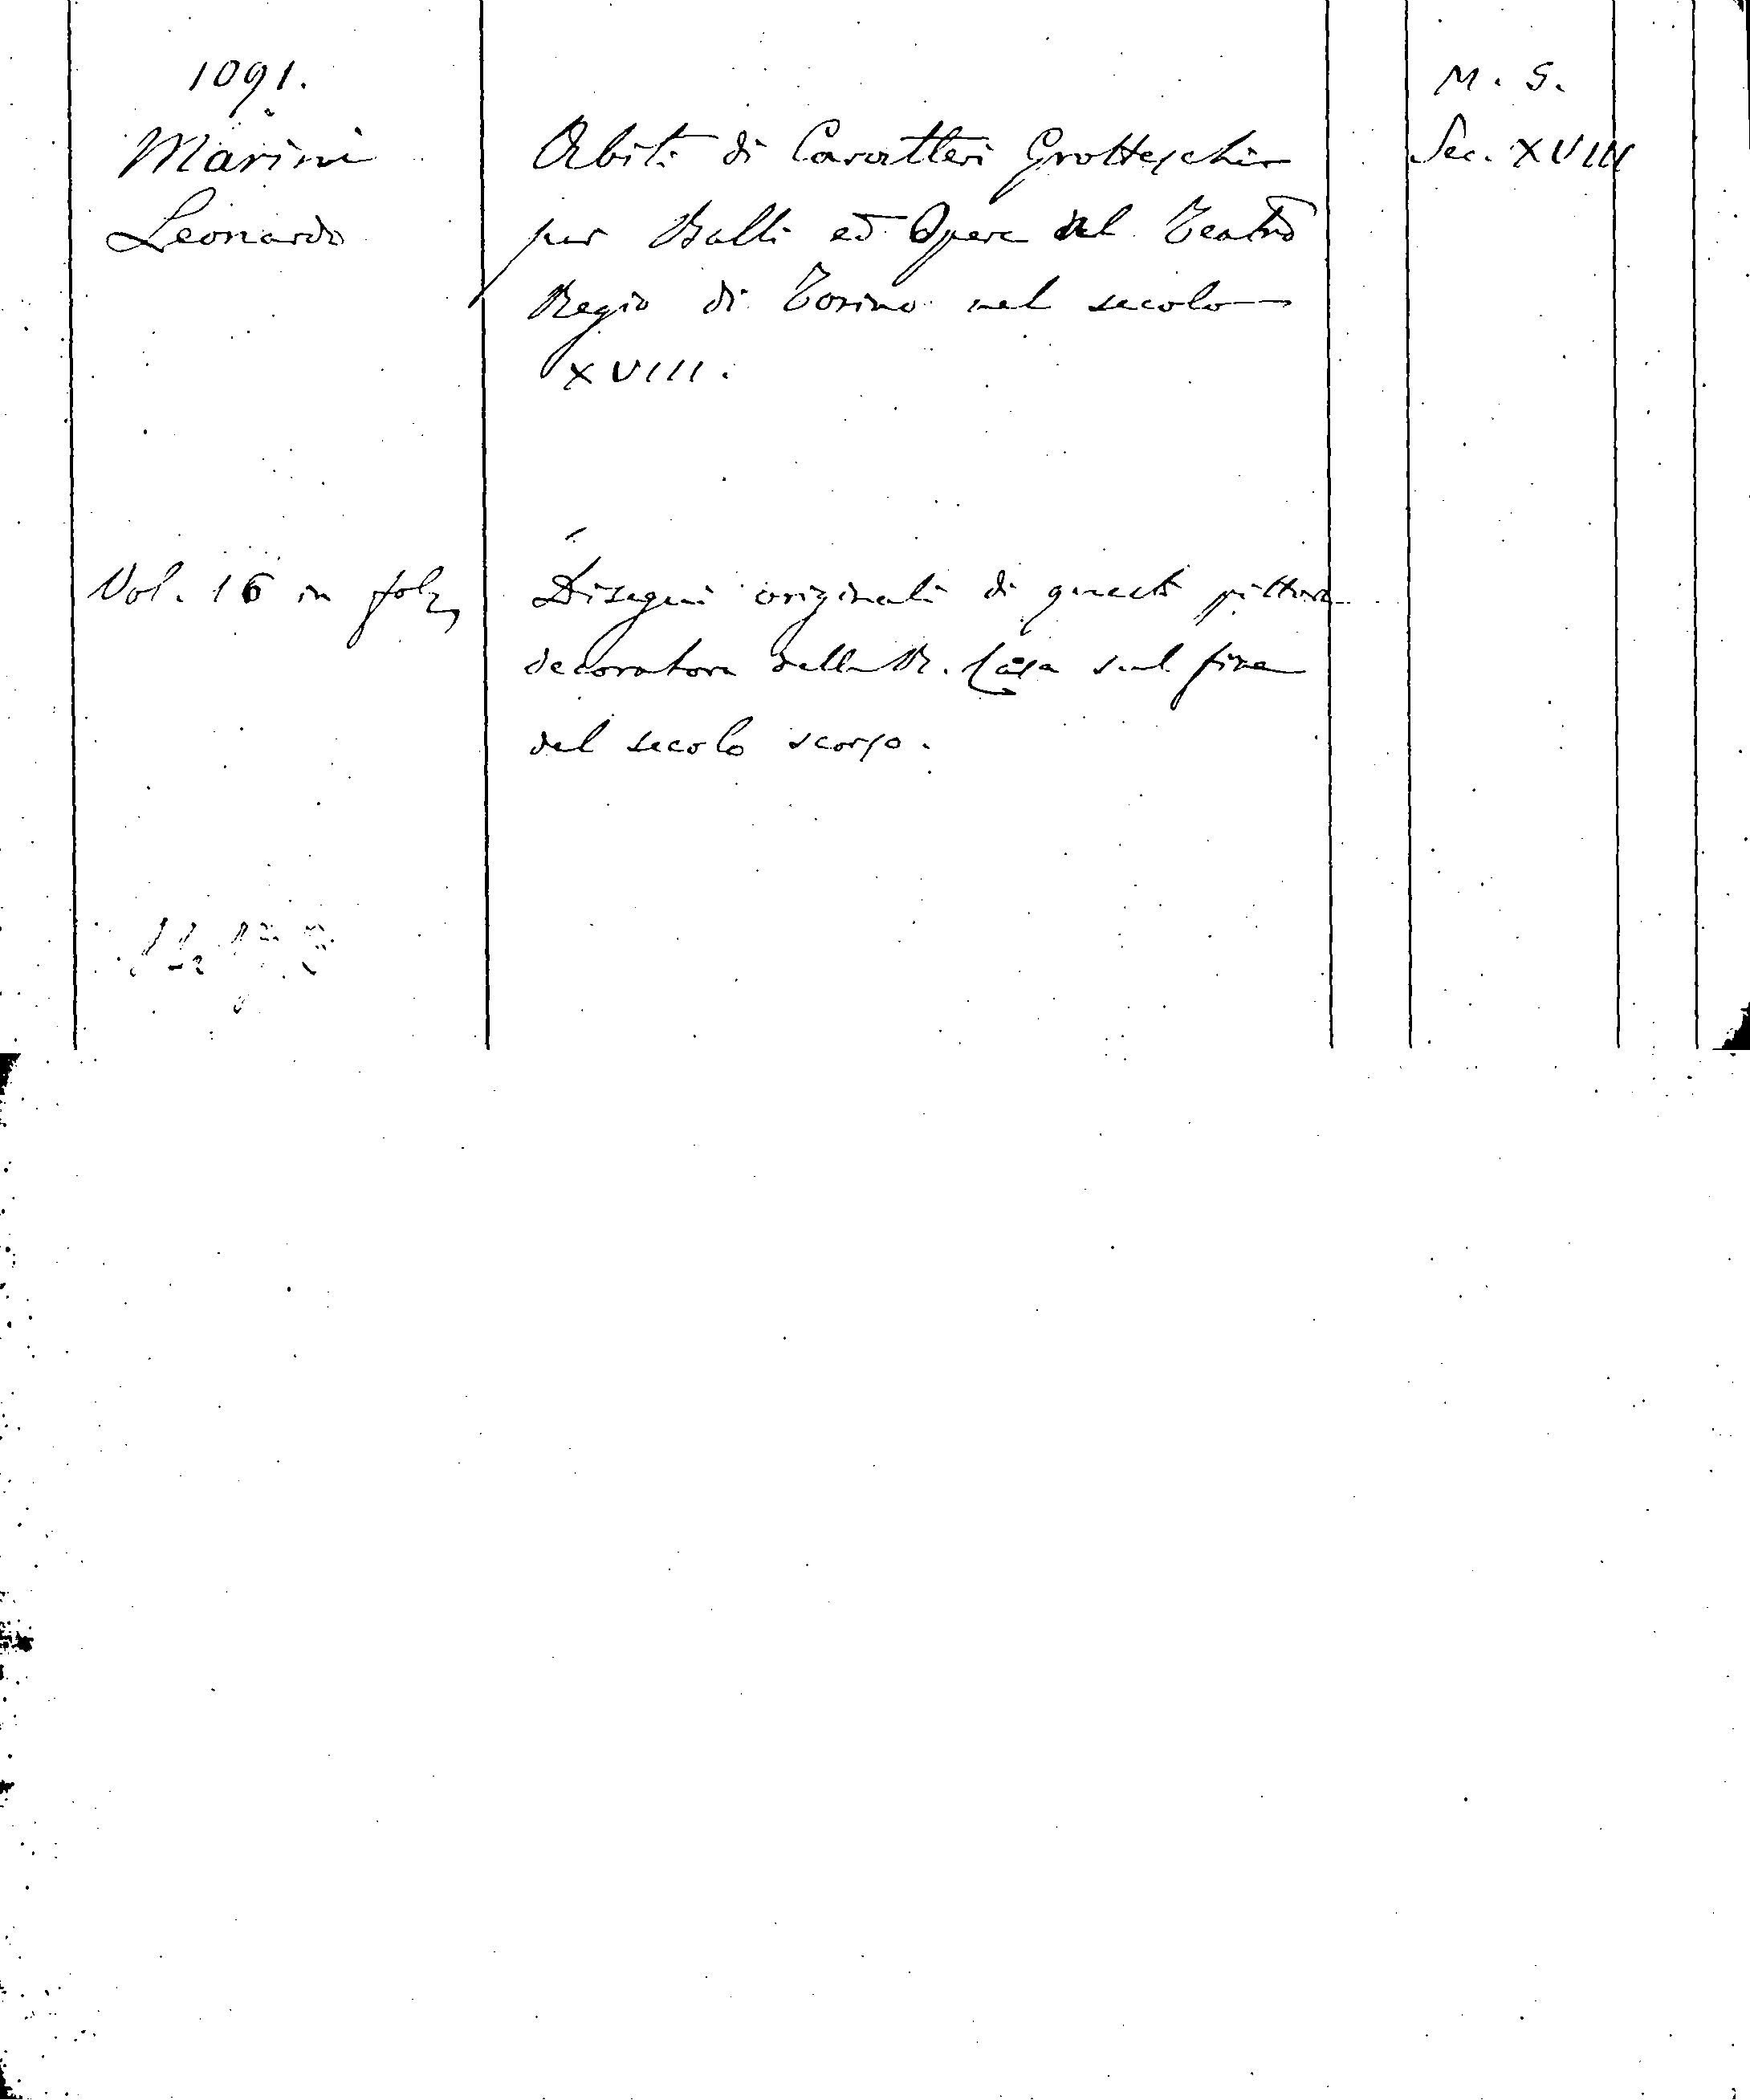 1091.
M. S.
Marini
Abiti di Caratteri Grotteschi
Sec. XVIII
Leonardo
per Balli ed Opere del Teatro
Regio di Torino nel secolo
XVIII.
Vol. 16 in fol.
Disegni originali di questo pittore
decoratore della R. Casa sul fine
del secolo scorso.